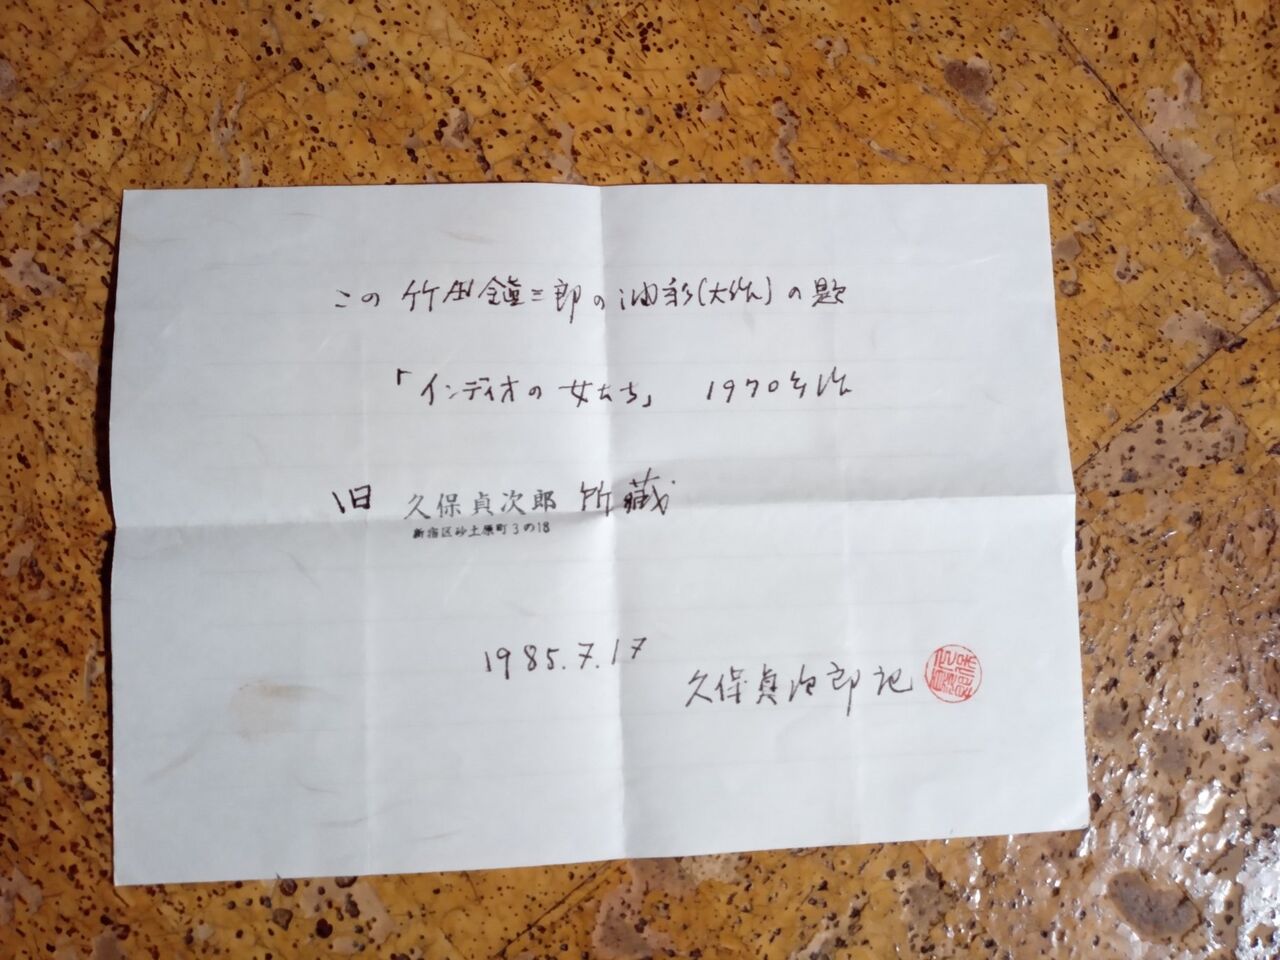 この 竹田鎭三郎の油彩(大作)の題
「インディオの女たち」 1970年作
旧 久保貞次郎 所蔵
新宿区砂土原町3の18
1985.7.17
久保貞次郎 記